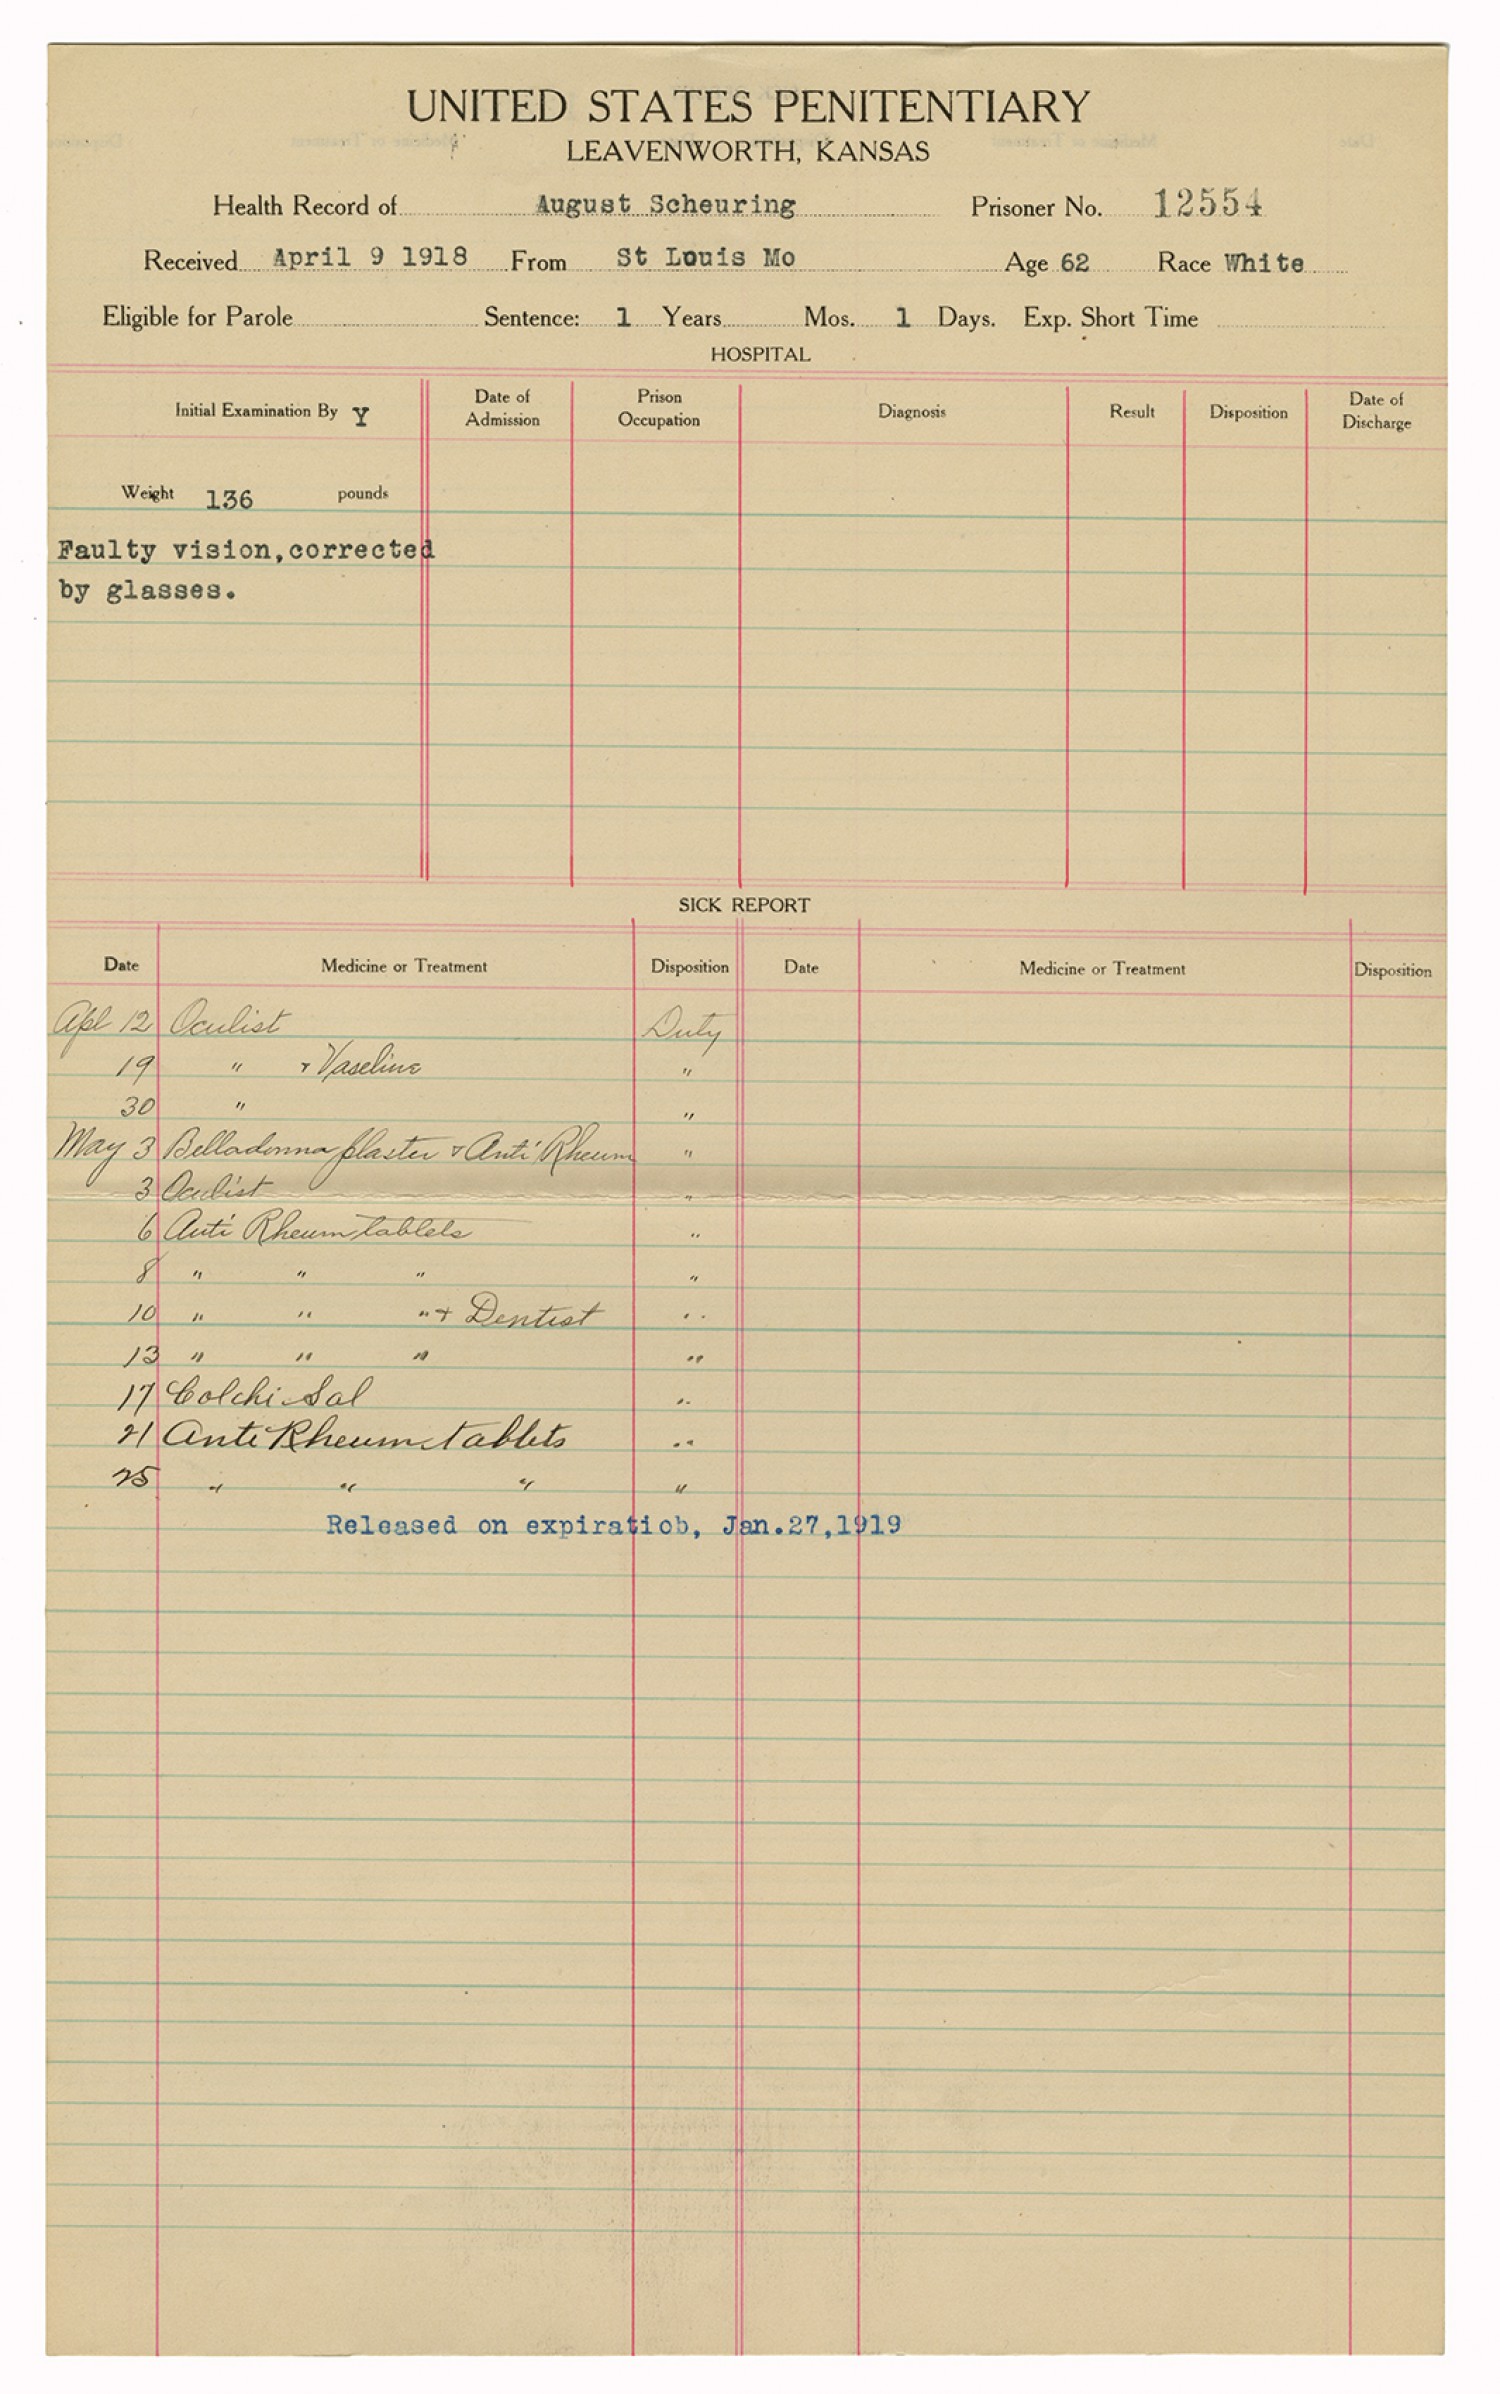 UNITED STATES PENITENTIARY
LEAVENWORTH, KANSAS
Health Record of August Scheuring Prisoner No. 12554
Received April 9 1918 From St Louis Mo Age 62 Race White
Eligible for Parole Sentence: 1 Years Mos. 1 Days. Exp. Short Time
HOSPITAL
Initial Examination By Y Date of Admission Prison Occupation Diagnosis Result Disposition Date of Discharge
Weight 136 pounds
Faulty vision,corrected
by glasses.
SICK REPORT
Date Medicine or Treatment Disposition Date Medicine or Treatment Disposition
Apl 12 Oculist Duty
19 " + Vaseline "
30 " "
May 3 Belladonna plaster & Anti Rheum "
3 Oculist "
6 Anti Rheum tablets "
8 " " " "
10 " " " + Dentist "
13 " " " "
17 Colchi-Sal "
21 Anti Rheum tablets "
25 " " " "
Released on expiratiob, Jan.27,1919